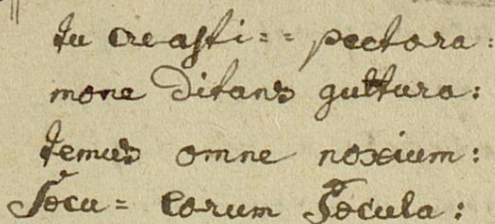 tu creasti = = pectora:
mone ditans guttura:
temus omne noxium:
Secu = lorum Secula: